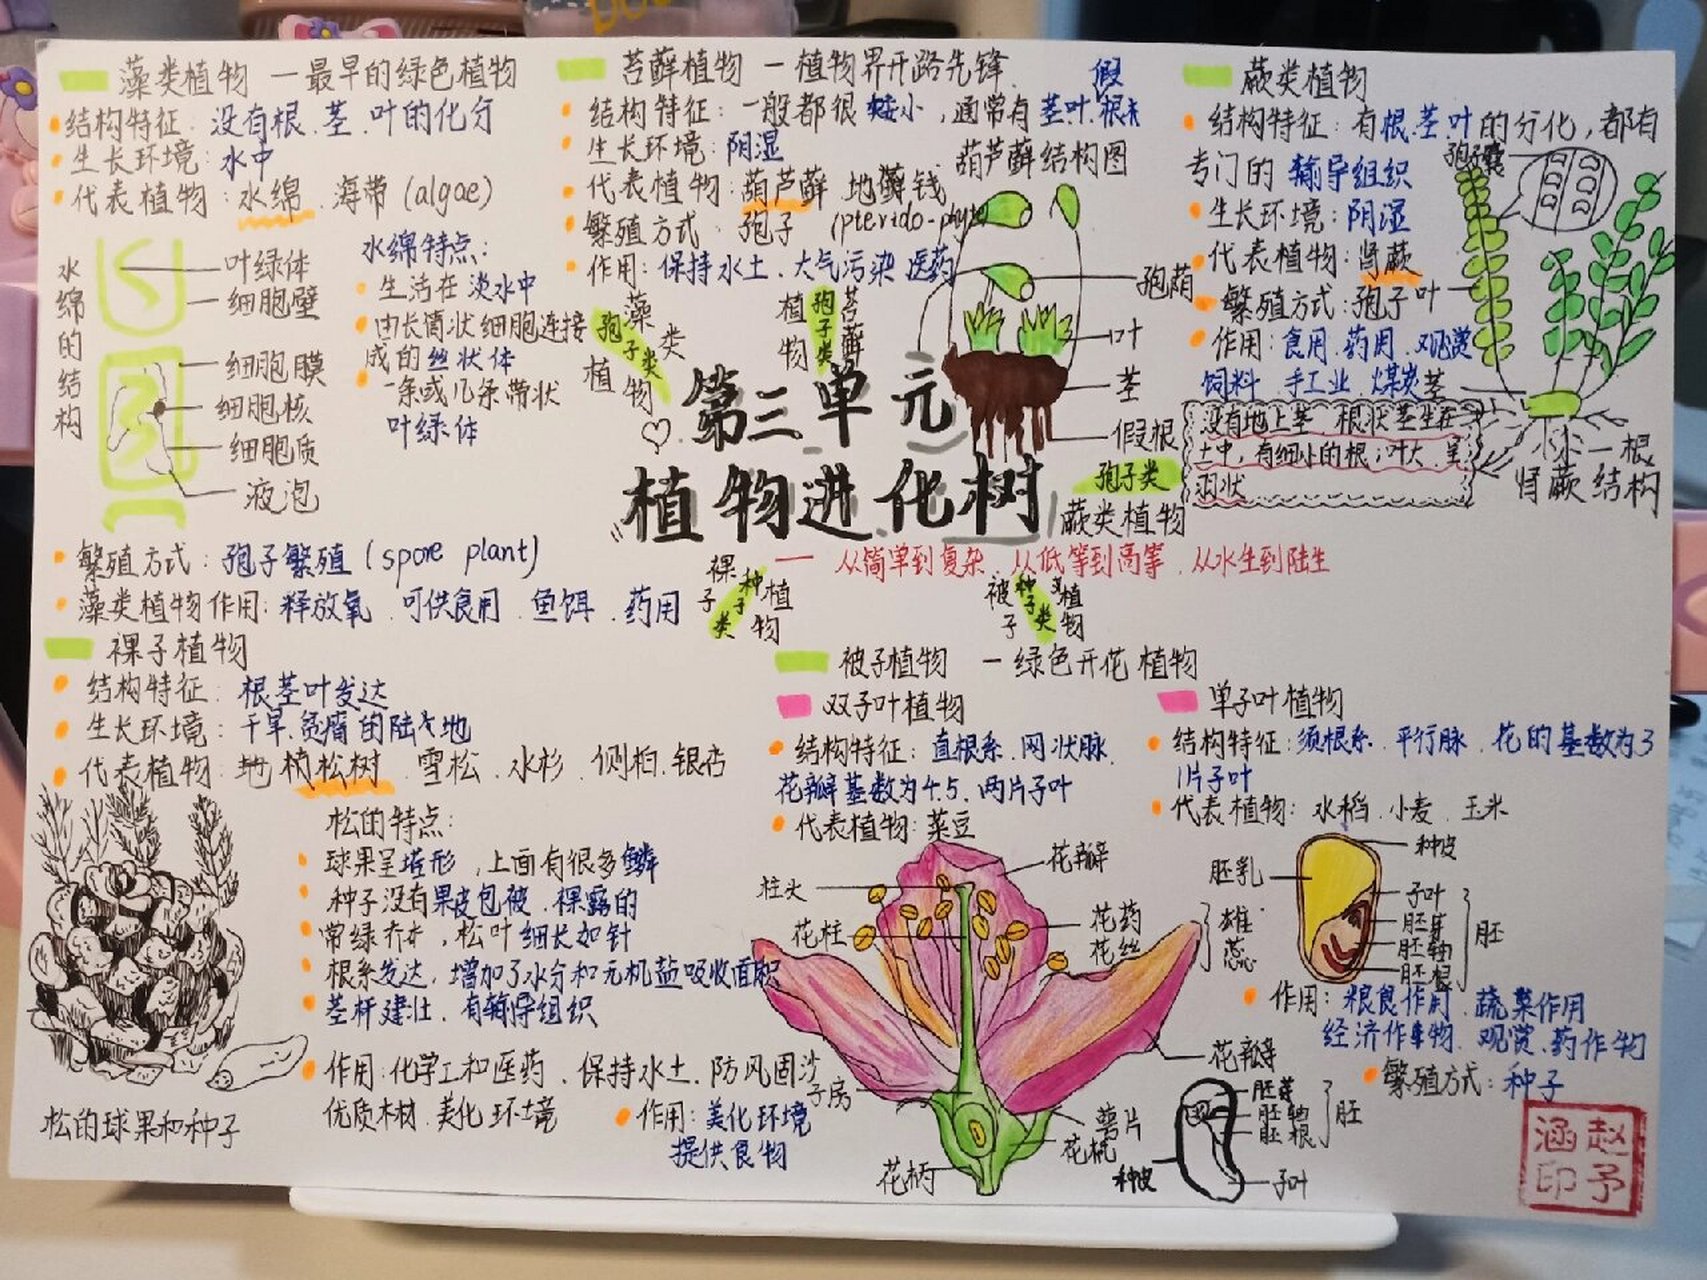 藻类植物 — 最早的绿色植物
结构特征: 没有根.茎.叶的化分
生长环境: 水中
代表植物: 水绵.海带(algae)
水绵的结构
叶绿体
细胞壁
细胞膜
细胞核
细胞质
液泡
水绵特点:
生活在淡水中
由长筒状细胞连接
成的丝状体
一条或几条带状
叶绿体
繁殖方式: 孢子繁殖(spore plant)
藻类植物作用: 释放氧.可供食用.鱼饵.药用
苔藓植物 — 植物界开路先锋
结构特征: 一般都很矮小,通常有茎叶.假根
生长环境: 阴湿
代表植物: 葫芦藓 地钱
繁殖方式: 孢子 (pterido-phyte)
作用: 保持水土.大气污染 医药
葫芦藓结构图
孢蒴
叶
茎
假根
蕨类植物
结构特征: 有根.茎.叶的分化,都有
专门的输导组织
生长环境: 阴湿
代表植物: 肾蕨
繁殖方式: 孢子
作用: 食用.药用.观赏
饲料.手工业.煤炭
孢子囊
叶
茎
没有地上茎.根状茎生在
土中,有细小的根;叶大.呈
羽状
根
肾蕨结构
藻类植物
孢子类
苔藓植物
孢子类
第三单元
植物进化树
孢子类
蕨类植物
— 从简单到复杂.从低等到高等.从水生到陆生
裸子植物
种子类
被子植物
种子类
裸子植物
结构特征: 根茎叶发达
生长环境: 干旱.贫瘠的陆地
代表植物: 松树.雪松.水杉.侧柏.银杏
松的特点:
球果呈塔形,上面有很多鳞
种子没有果皮包被.裸露的
常绿乔木,松叶细长如针
根系发达,增加了水分和无机盐吸收面积
茎杆建壮.有输导组织
作用: 化学工和医药.保持水土.防风固沙
优质木材.美化环境
松的球果和种子
被子植物 — 绿色开花植物
双子叶植物
结构特征: 直根系.网状脉.
花瓣基数为4.5.两片子叶
代表植物: 菜豆
柱头
花柱
子房
花柄
花瓣
花药
花丝
雄蕊
花瓣
萼片
花托
作用: 美化环境
提供食物
胚芽
胚轴
胚根
胚
种皮
子叶
单子叶植物
结构特征: 须根系.平行脉.花的基数为3
1片子叶
代表植物: 水稻.小麦.玉米
种皮
胚乳
子叶
胚芽
胚轴
胚根
胚
作用: 粮食作用.蔬菜作用
经济作物.观赏.药作物
繁殖方式: 种子
赵予涵印